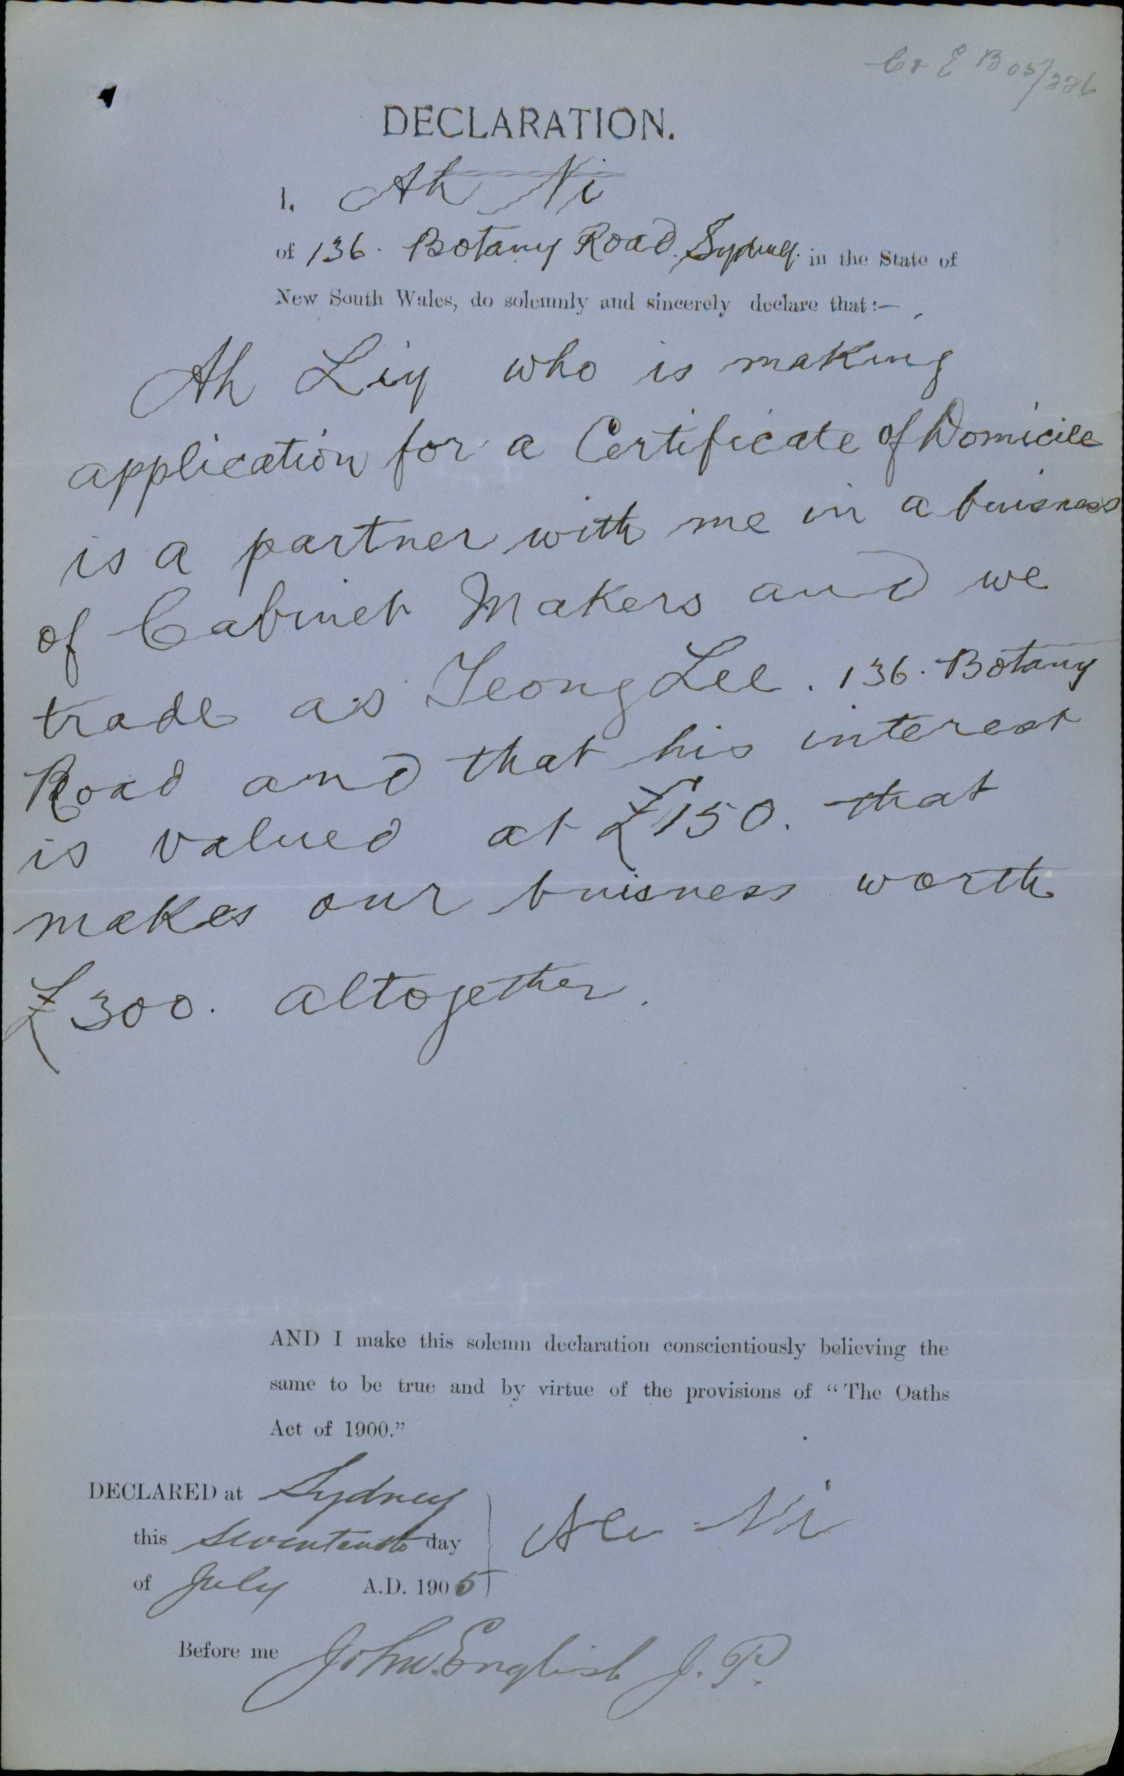 C & E B 05/226
DECLARATION.
I, Ah Ni
of 136. Botany Road. Sydney. in the State of
New South Wales, do solemnly and sincerely declare that :—
Ah Liy who is making
application for a Certificate of Domicile
is a partner with me in a buisness
of Cabinet Makers and we
trade as Yeong Lee. 136. Botany
Road and that his interest
is valued at £150. that
makes our buisness worth
£300. altogether.
AND I make this solemn declaration conscientiously believing the
same to be true and by virtue of the provisions of “The Oaths
Act of 1900.”
DECLARED at Sydney
this seventeenth day
of July A.D. 1905
Ah Ni
Before me John English J.P.